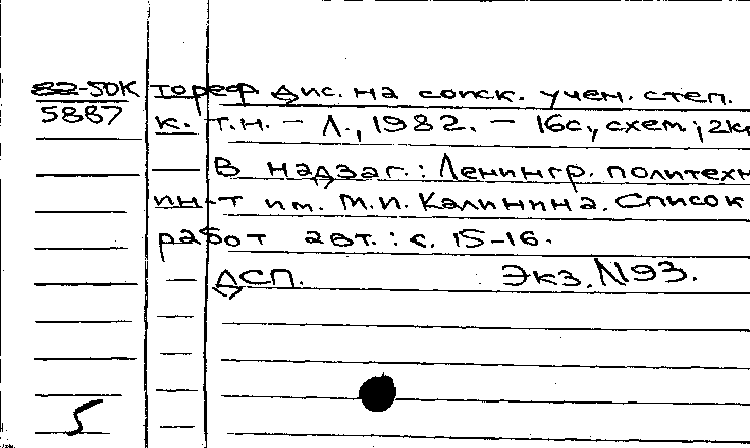 82-50К тореф дис. на соиск. учен. степ.
5887 к. т.н. – Л., 1982. – 16с, схем; 2к
В надзаг.: Ленингр. политехн
ин-т им. М.И. Калинина. Список
работ авт.: с. 15-16.
ДСП. Экз. N93.
5